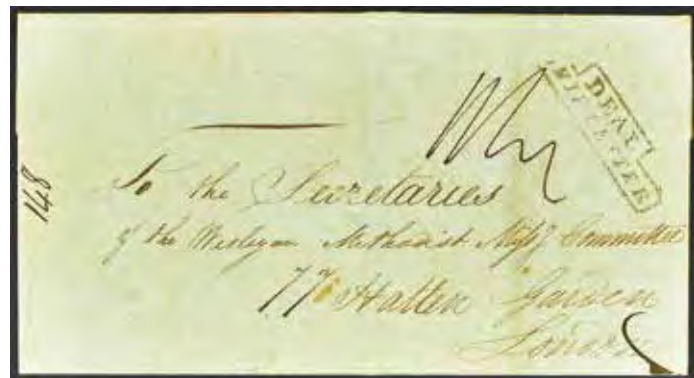 DEAL
SHIP LETTER
148
To the Secretaries
of the Wesleyan Methodist Missy Committee
77 Hatten Garden
London